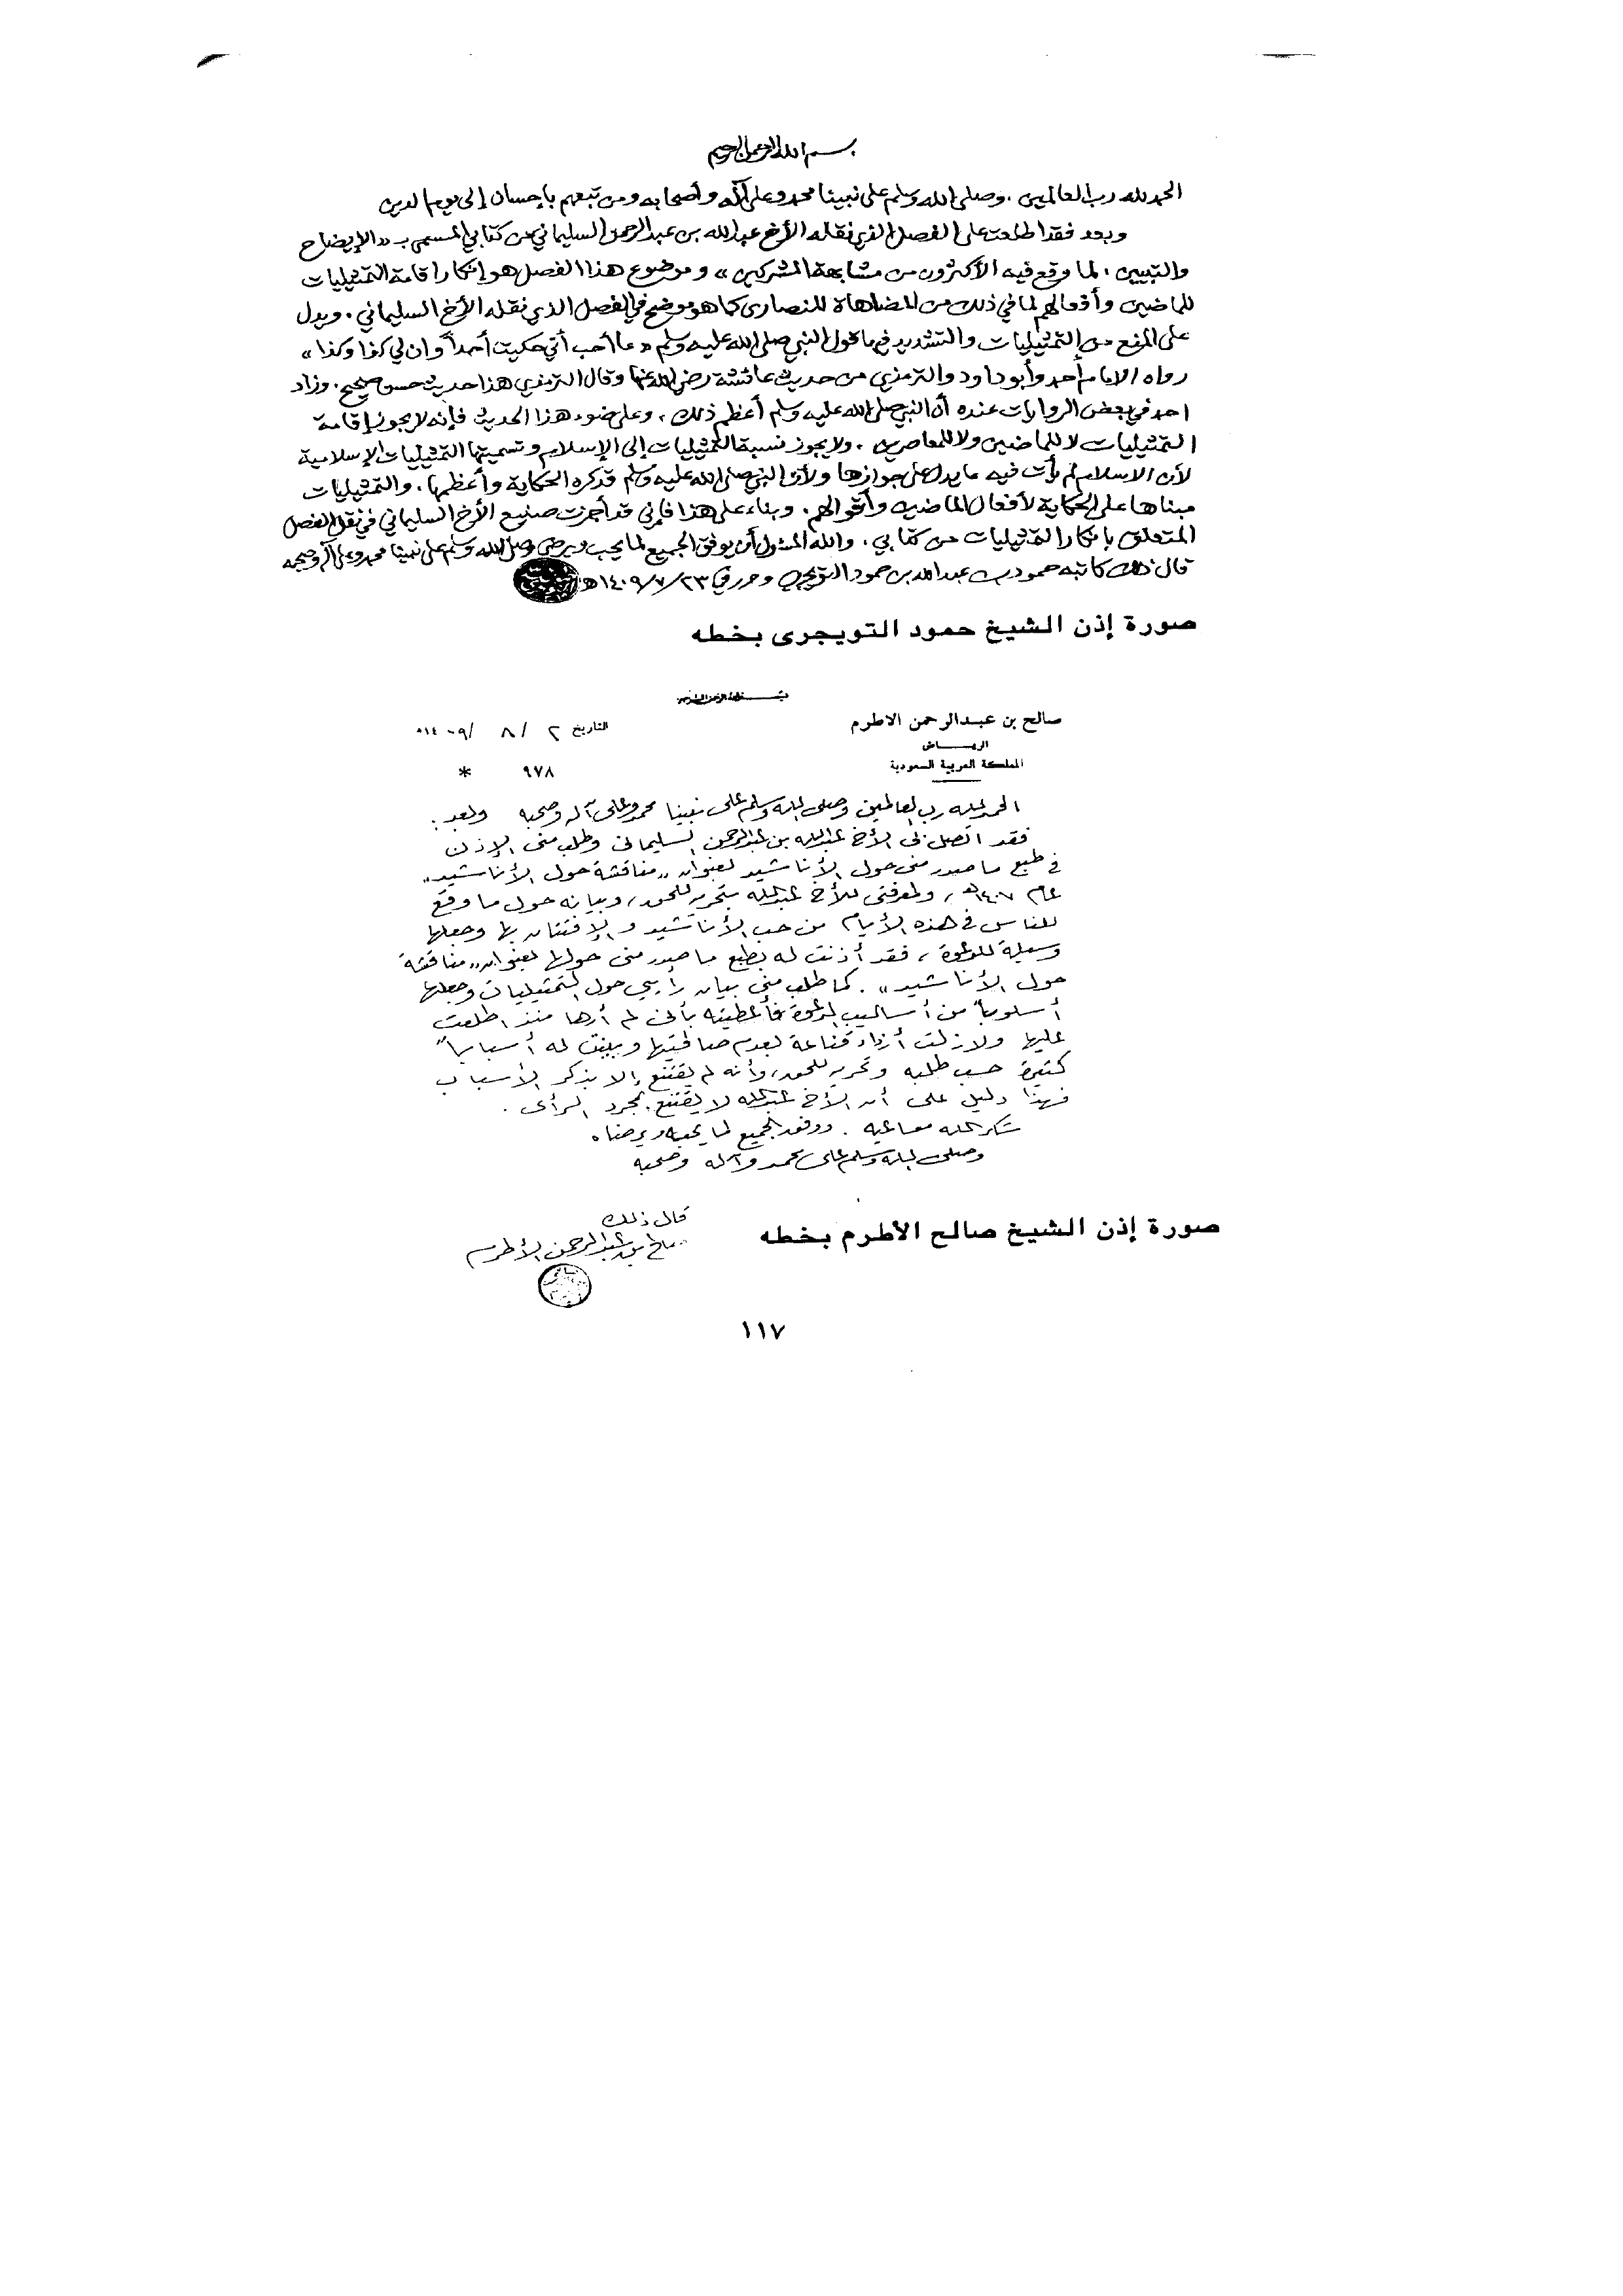 بسم الله الرحمن الرحيم
الحمد لله رب العالمين . وصلى الله وسلم على نبينا محمد وعلى آله وأصحابه ومن تبعهم بإحسان إلى يوم الدين
وبعد فقد اطلعت على الفصل الذي نقله الأخ عبدالله بن عبدالرحمن السليماني من كتابي المسمى بـ «الإيضاح
والتبيين ، لما وقع فيه الأكثرون من مشابهة المشركين» وموضوع هذا الفصل هو إنكار إقامة التمثيليات
للماضين وأفعالهم لما في ذلك من المضاهاة للنصارى كما هو موضح في الفصل الذي نقله الأخ السليماني . ويدل
على المنع من التمثيليات والتشديد فيها قول النبي صلى الله عليه وسلم «ما أحب أني حكيت أحداً وان لي كذا وكذا»
رواه الامام أحمد وأبو داود والترمذي من حديث عائشة رضي الله عنها وقال الترمذي هذا حديث حسن صحيح . وزاد
احمد في بعض الروايات عنده أن النبي صلى الله عليه وسلم أعظم ذلك ، وعلى ضوء هذا الحديث فإنه لا يجوز إقامة
التمثيليات لا للماضين ولا للمعاصرين . ولا يجوز نسبة التمثيليات إلى الإسلام وتسميتها التمثيليات الإسلامية
لأن الاسلام لم يأت فيه ما يدل على جوازها ولأن النبي صلى الله عليه وسلم قد كره الحكاية وأعظمها . والتمثيليات
مبناها على الحكاية لأفعال الماضين وأقوالهم . وبناء على هذا فإني قد أجزت صنيع الأخ السليماني في نقل الفصل
المتعلق بإنكار التمثيليات من كتابي . والله المسئول أن يوفق الجميع لما يحب ويرضى وصلى الله وسلم على نبينا محمد وعلى آله وصحبه
قال ذلك كاتبه حمود بن عبدالله بن حمود التويجري وحرر في ٢٣ / ٧ / ١٤٠٩هـ
صورة إذن الشيخ حمود التويجرى بخطه
صالح بن عبدالرحمن الاطرم
التاريخ ٢ / ٨ / ١٤٠٩هـ
الريـــاض
المملكة العربية السعودية
٩٧٨ *
الحمد لله رب العالمين وصلى الله وسلم على نبينا محمد وعلى آله وصحبه وبعد :
فقد اتصل بي الأخ عبدالله بن عبدالرحمن السليماني وطلب مني الإذن
في طبع ما صدر مني حول الأناشيد بعنوان «مناقشة حول الأناشيد»
عام ١٤٠٧هـ ، ولمعرفتي للأخ عبدالله بتحريه للحق ، وبيانه حول ما وقع
للناس في هذه الأيام من حب الأناشيد والإفتتان بها وجعلها
وسيلة للدعوة ، فقد أذنت له بطبع ما صدر مني حولها بعنوان «مناقشة
حول الأناشيد» . كما طلب مني بيان رأيي حول التمثيليات وجعلها
أسلوباً من أساليب الدعوة فأعطيته بأني لم أرها منذ اطلعت
عليها ولازلت أزداد قناعة بعدم صلاحيتها وبينت له أسباباً
كثيرة حسب طلبه وتحريه للحق ، وأنه لم يقتنع إلا بذكر الأسباب
فهذا دليل على أن الأخ عبدالله لا يقتنع بمجرد الرأى .
شكر الله مساعيه . ووفق الجميع لما يحبه ويرضاه
وصلى الله وسلم على محمد وآله وصحبه
قال ذلك
صالح بن عبدالرحمن الأطرم
صورة إذن الشيخ صالح الأطرم بخطه
١١٧